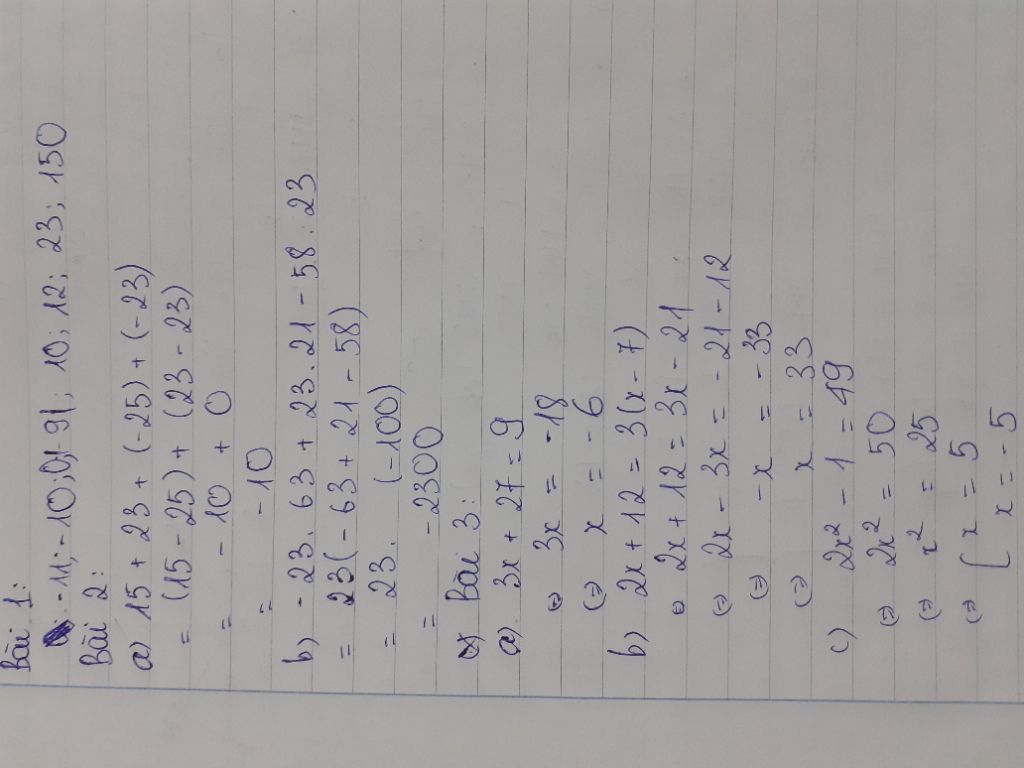 Bài 1:
-11; -10; 0; 9; 10; 12; 23; 150
Bài 2:
a) 15 + 23 + (-25) + (-23)
= (15 - 25) + (23 - 23)
= - 10 + 0
= - 10
b) - 23. 63 + 23. 21 - 58 . 23
= 23(- 63 + 21 - 58)
= 23. (-100)
= -2300
Bài 3:
a). 3x + 27 = 9
⇔ 3x = -18
⇔ x = - 6
b) 2x + 12 = 3(x - 7)
⇔ 2x + 12 = 3x - 21
⇔ 2x - 3x = - 21 - 12
⇔ -x = - 33
⇔ x = 33
c) 2x² - 1 = 49
⇔ 2x² = 50
⇔ x² = 25
⇔ [ x = 5
x = - 5